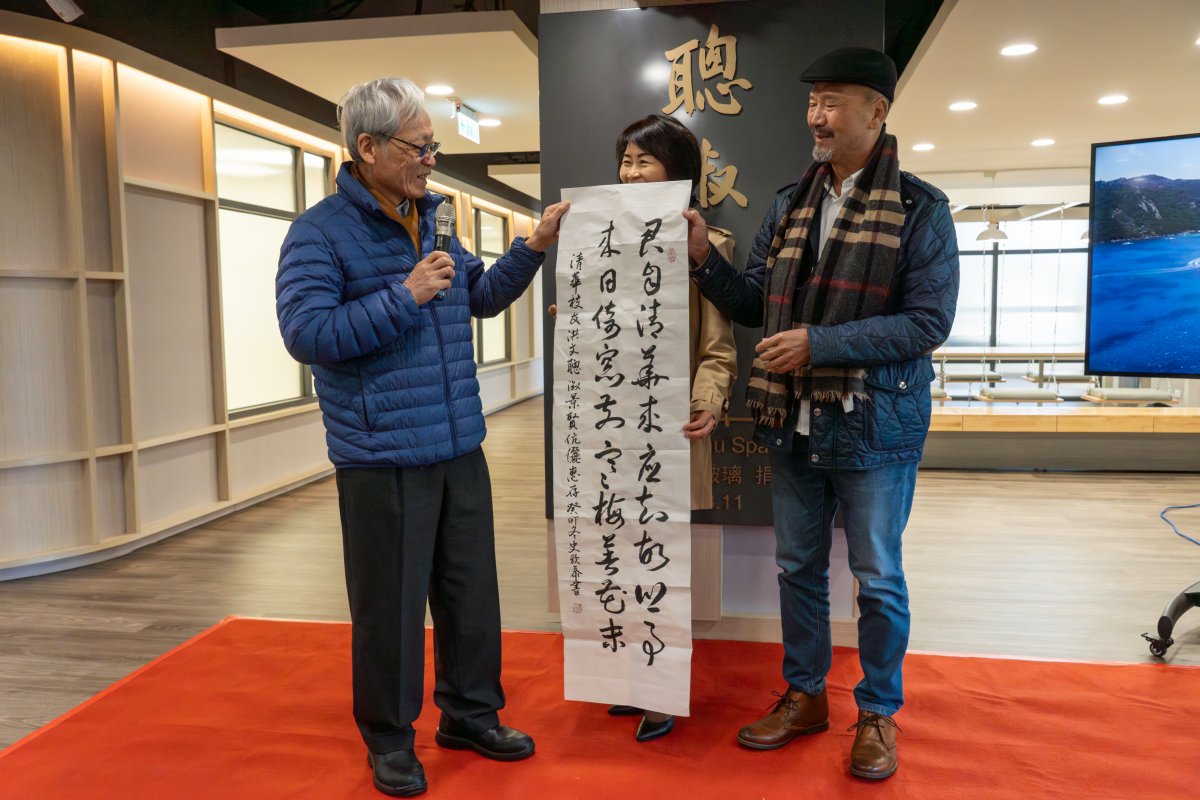 聰
君自清華來應知故鄉事
來日綺窗前寒梅著花未
清華校友洪文聰淑景賢伉儷惠存癸卯冬史欽泰書
u Spa
玻璃 捐
.11